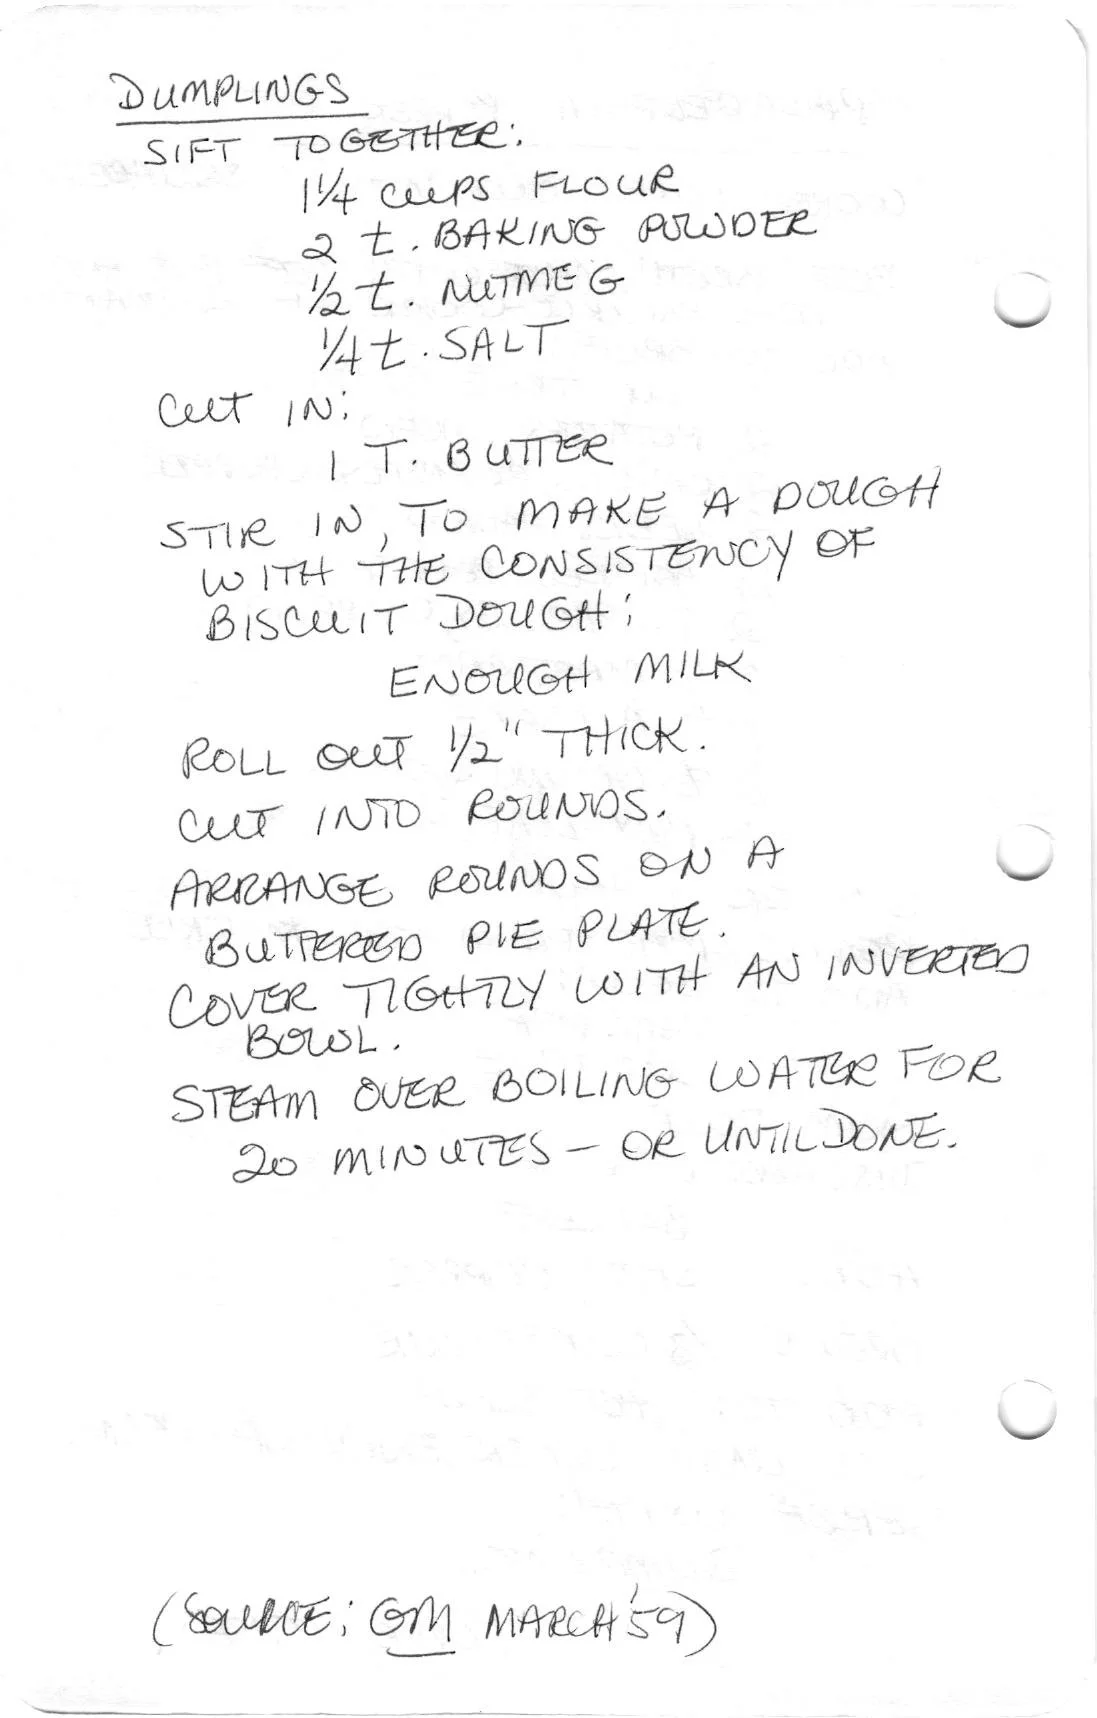 DUMPLINGS
SIFT TOGETHER:
1 1/4 CUPS FLOUR
2 t. BAKING POWDER
1/2 t. NUTMEG
1/4 t. SALT
CUT IN:
1 T. BUTTER
STIR IN, TO MAKE A DOUGH
WITH THE CONSISTENCY OF
BISCUIT DOUGH:
ENOUGH MILK
ROLL OUT 1/2" THICK.
CUT INTO ROUNDS.
ARRANGE ROUNDS ON A
BUTTERED PIE PLATE.
COVER TIGHTLY WITH AN INVERTED
BOWL.
STEAM OVER BOILING WATER FOR
20 MINUTES — OR UNTIL DONE.
(SOURCE: GM MARCH '59)